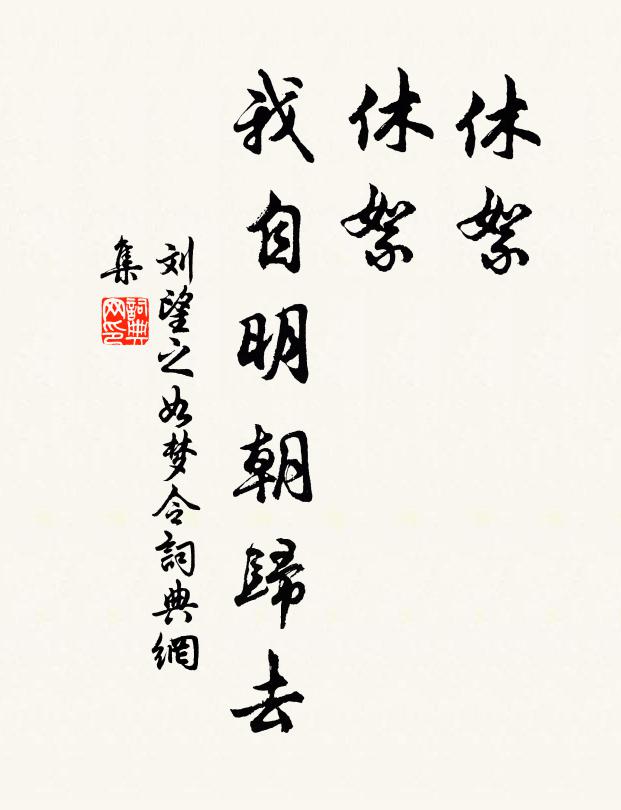 休絮
休絮
我自明朝歸去
刘望之如梦令詞典網
集
詞典
网印